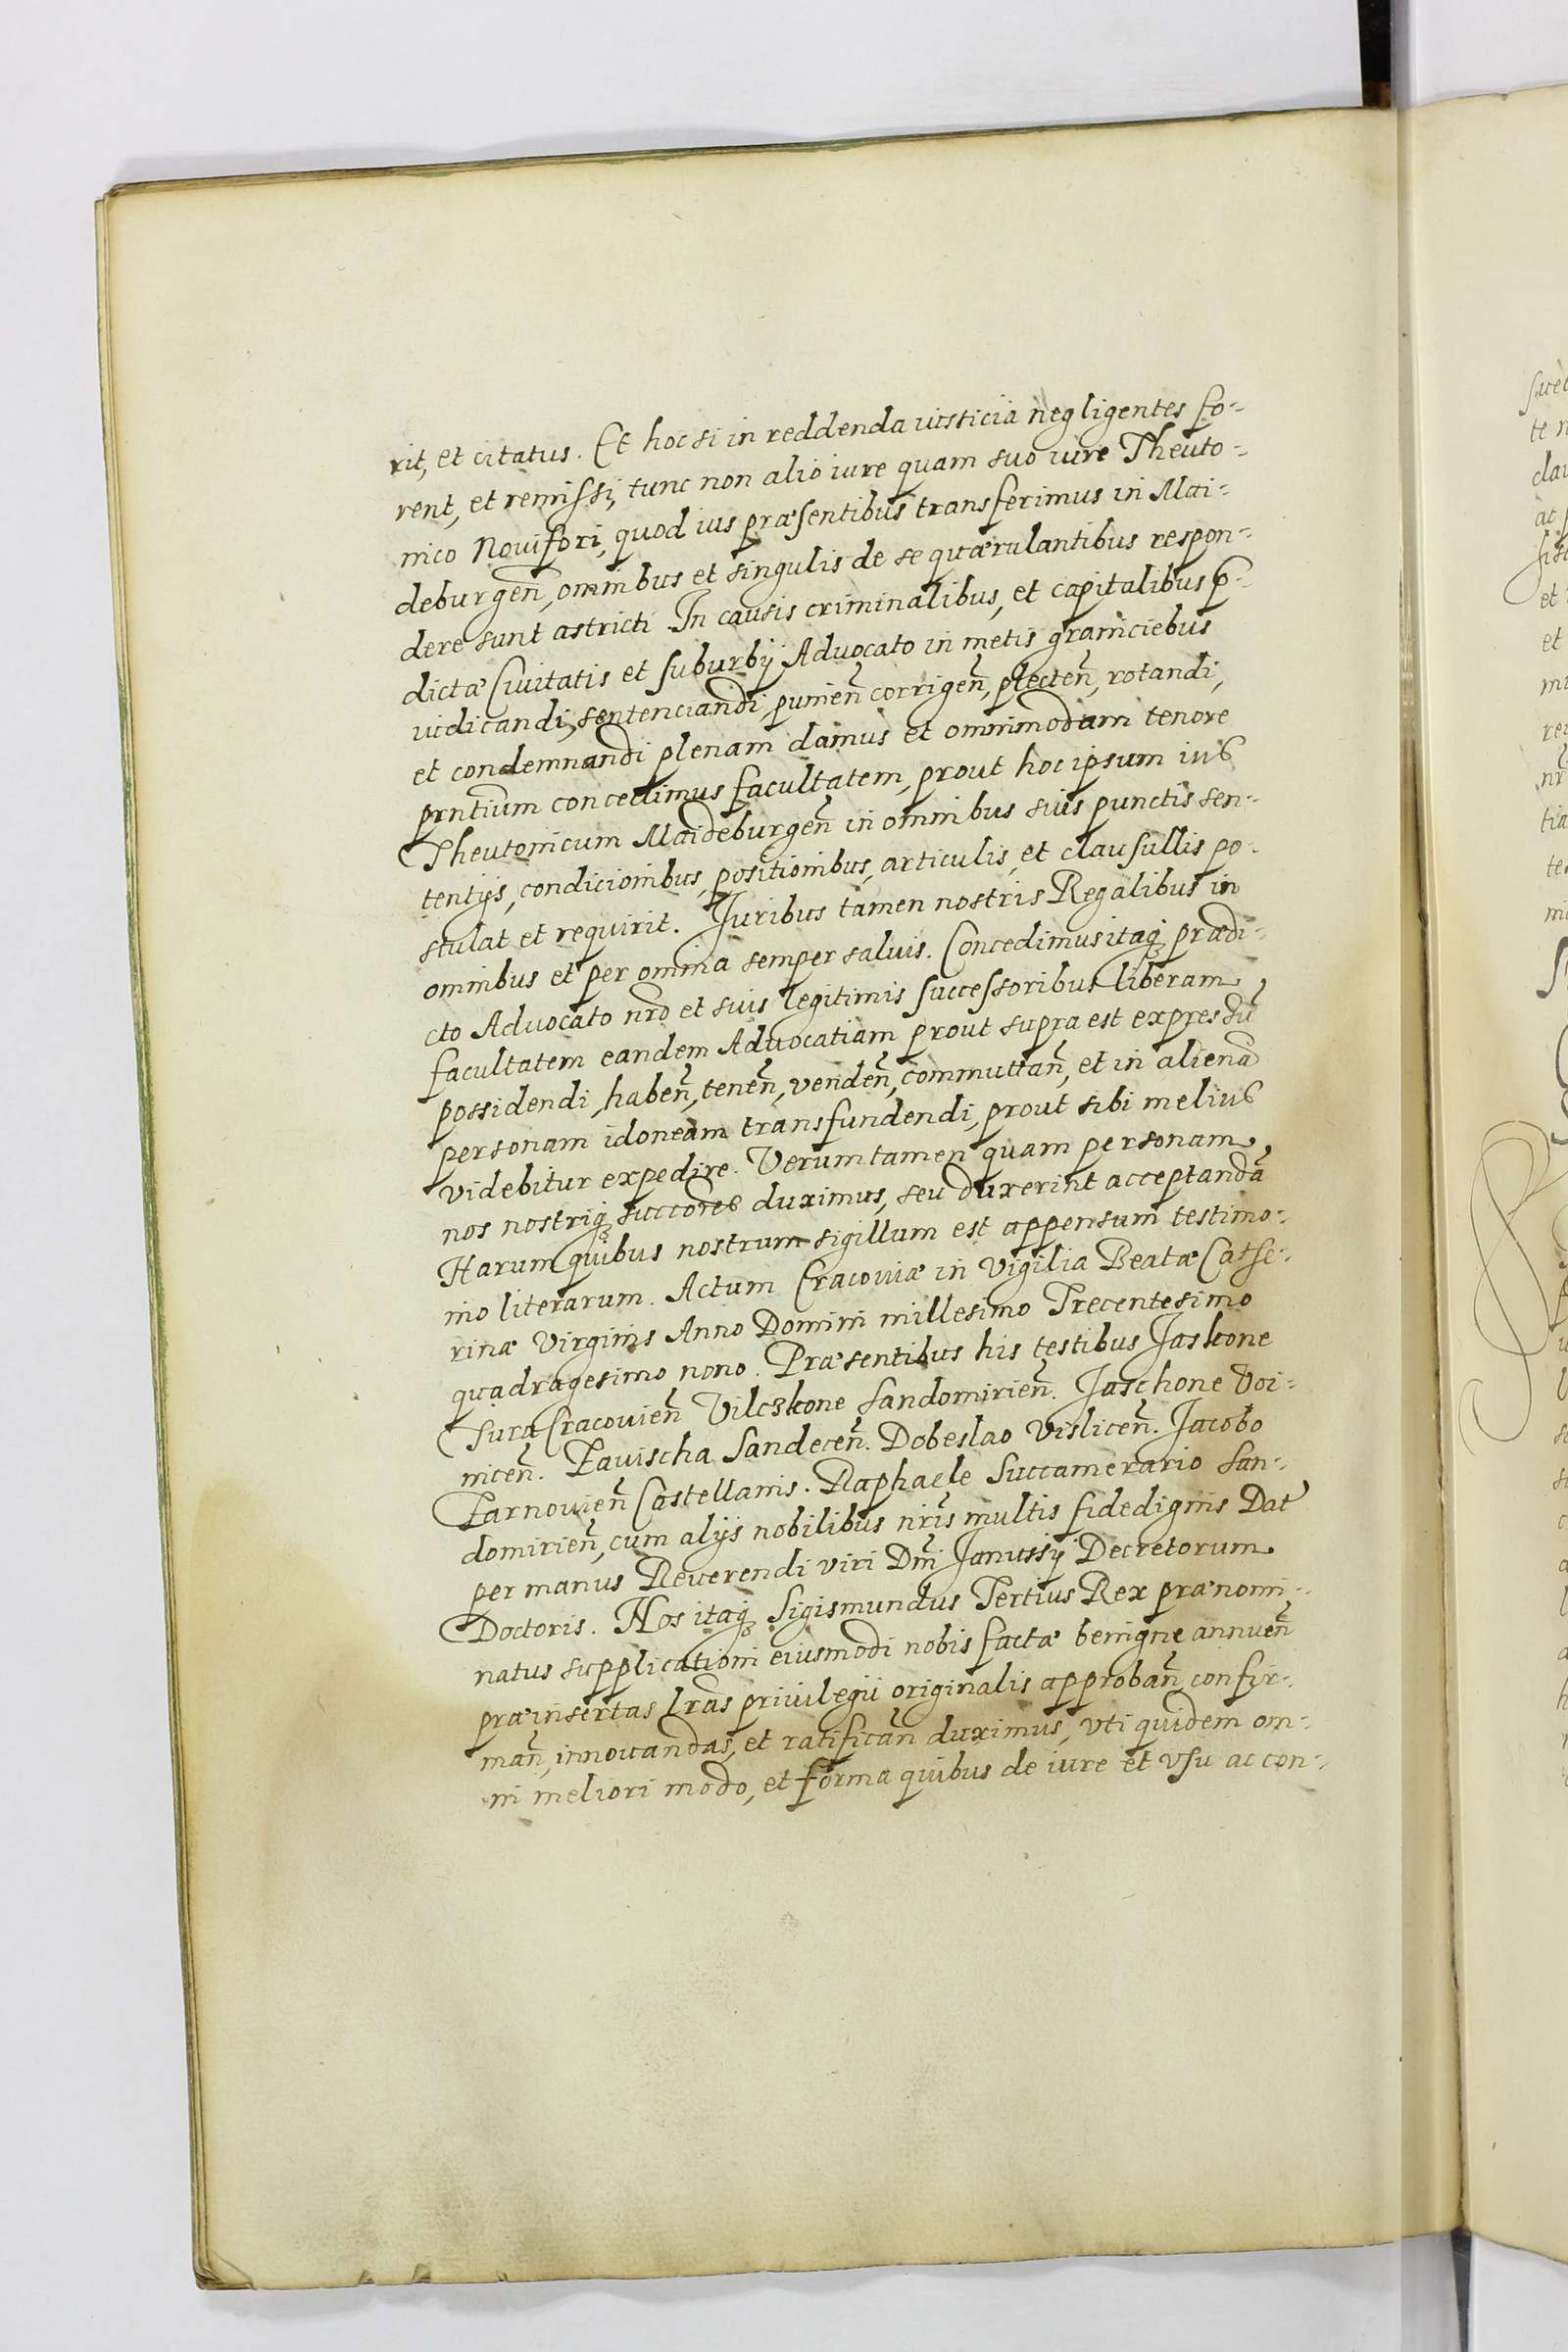 rit, et citatus. Et hoc si in reddenda iusticia negligentes fo-
rent, et remissi, tunc non alio iure quam suo iure Theuto-
nico Novifori, quod ius præsentibus transferimus in Mai-
deburgen̄, omnibus et singulis de se quærulantibus respon-
dere sunt astricti In causis criminalibus, et capitalibus p̄-
dictæ Civitatis et Suburbij Advocato in metis graniciebus
iudicandi, sentenciandi, punien̄ corrigen̄, plecten̄, rotandi,
et condemnandi plenam damus et omnimodam tenore
prntium concedimus facultatem, prout hoc ipsum ius
Theutonicum Maideburgen̄ in omnibus suis punctis sen-
tentijs, condicionibus, positionibus, articulis, et clausullis po-
stulat et requirit. Juribus tamen nostris Regalibus in
omnibus et per omnia semper salvis. Concedimus itaq prædi-
cto Advocato nrō et suis legitimis successoribus liberam
facultatem eandem Advocatiam prout supra est expressū
possidendi, haben̄, tenen̄, venden̄, commuttan̄, et in alienā
personam idoneam transfundendi, prout sibi melius
videbitur expedire. Verumtamen quam personam
nos nostriq succores duximus, seu duxerint acceptandā
Harum quibus nostrum sigillum est appensum testimo-
nio literarum. Actum Cracoviæ in Vigilia Beatæ Cathe-
rinæ Virginis Anno Domini millesimo Trecentesimo
quadragesimo nono. Præsentibus his testibus Jaskone
Sura Cracovien̄ Vilczkone Sandomirien̄. Jaschone Voi-
nicen̄. Zavischa Sandecen̄. Dobeslao Vislicen̄. Jacobo
Tarnovien̄ Castellanis. Raphaele Succamerario San-
domirien̄, cum alijs nobilibus nrīs multis fidedignis Dat
per manus Reverendi viri Dnī Janussij Decretorum
Doctoris. Nos itaq Sigismundus Tertius Rex prænomi-
natus supplicationi eiusmodi nobis factæ benigne annuen̄
præinsertas lrās privilegii originalis approban̄ confir-
man̄, innovandas, et ratifican̄ duximus, vti quidem om-
ni meliori modo, et forma quibus de iure et vsu ac con-